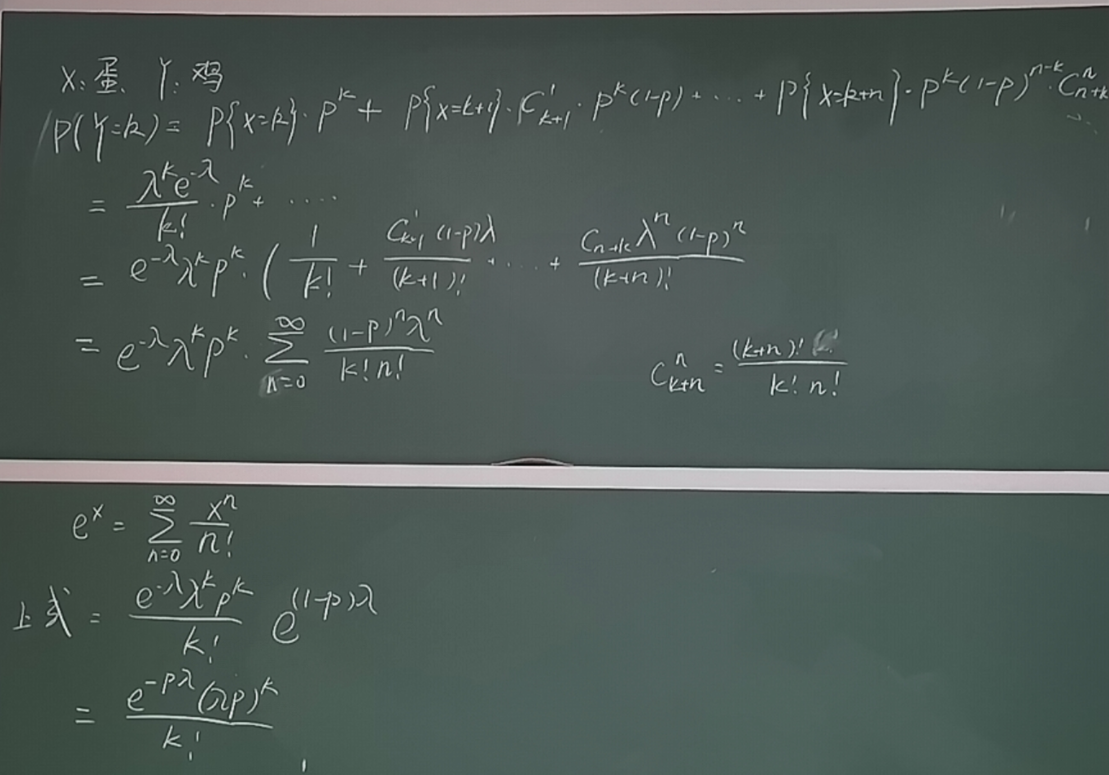 X:蛋 Y:鸡
P(Y=k) = P{X=k}·p^k + P{X=k+1}·C_{k+1}^1·p^k(1-p)+···+P{X=k+n}·p^k(1-p)^{n-k}·C_{n+k}^n ···
= \frac{λ^k e^{-λ}}{k!}·p^k+ ····
= e^{-λ}λ^k p^k·(\frac{1}{k!} + \frac{C_{k+1}^1(1-p)λ}{(k+1)!} +···+ \frac{C_{n+k}λ^n(1-p)^n}{(k+n)!}
= e^{-λ}λ^k p^k·\sum_{n=0}^{∞} \frac{(1-p)^n λ^n}{k!n!}
C_{k+n}^n = \frac{(k+n)!}{k! n!}
e^x = \sum_{n=0}^{∞} \frac{x^n}{n!}
上式 = \frac{e^{-λ}λ^k p^k}{k!} e^{(1-p)λ}
= \frac{e^{-pλ}(λp)^k}{k!}